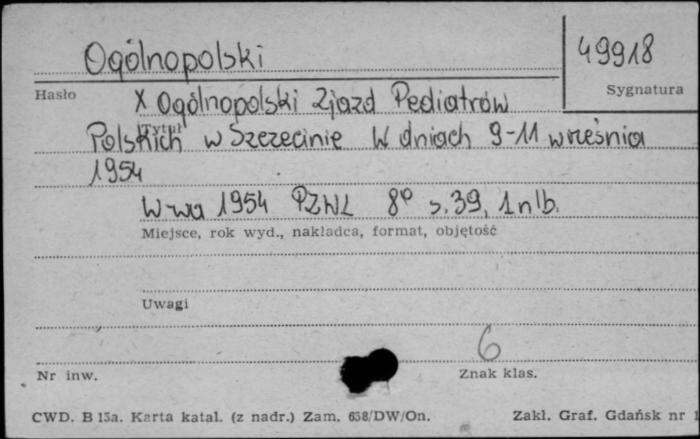 Ogólnopolski
49918
Hasło
Sygnatura
X Ogólnopolski Zjazd Pediatrów
Polskich w Szczecinie W dniach 9-11 września
Tytuł
1954
W-wa 1954 PZWL 8° s.39, 1 nlb.
Miejsce, rok wyd., nakładca, format, objętość
Uwagi
6
Nr inw.
Znak klas.
CWD. B 15a. Karta katal. (z nadr.) Zam. 658/DW/On.
Zakl. Graf. Gdańsk nr 1